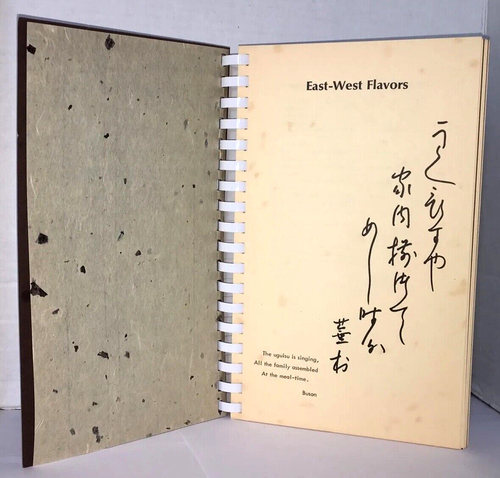 East-West Flavors
うくひすや
家内揃うて
めし時分
蕪村
The uguisu is singing,
All the family assembled
At the meal-time.
Buson